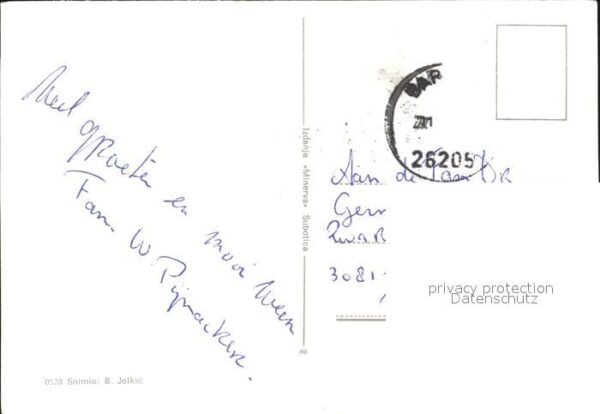 Veel groeten en mooi weer
Fam. W. Pijnacker.
Izdanje «Minerva» Subotica
BAR
26205
Aan de Fam
3081
privacy protection
Datenschutz
0528 Snimio: B. Jelkic